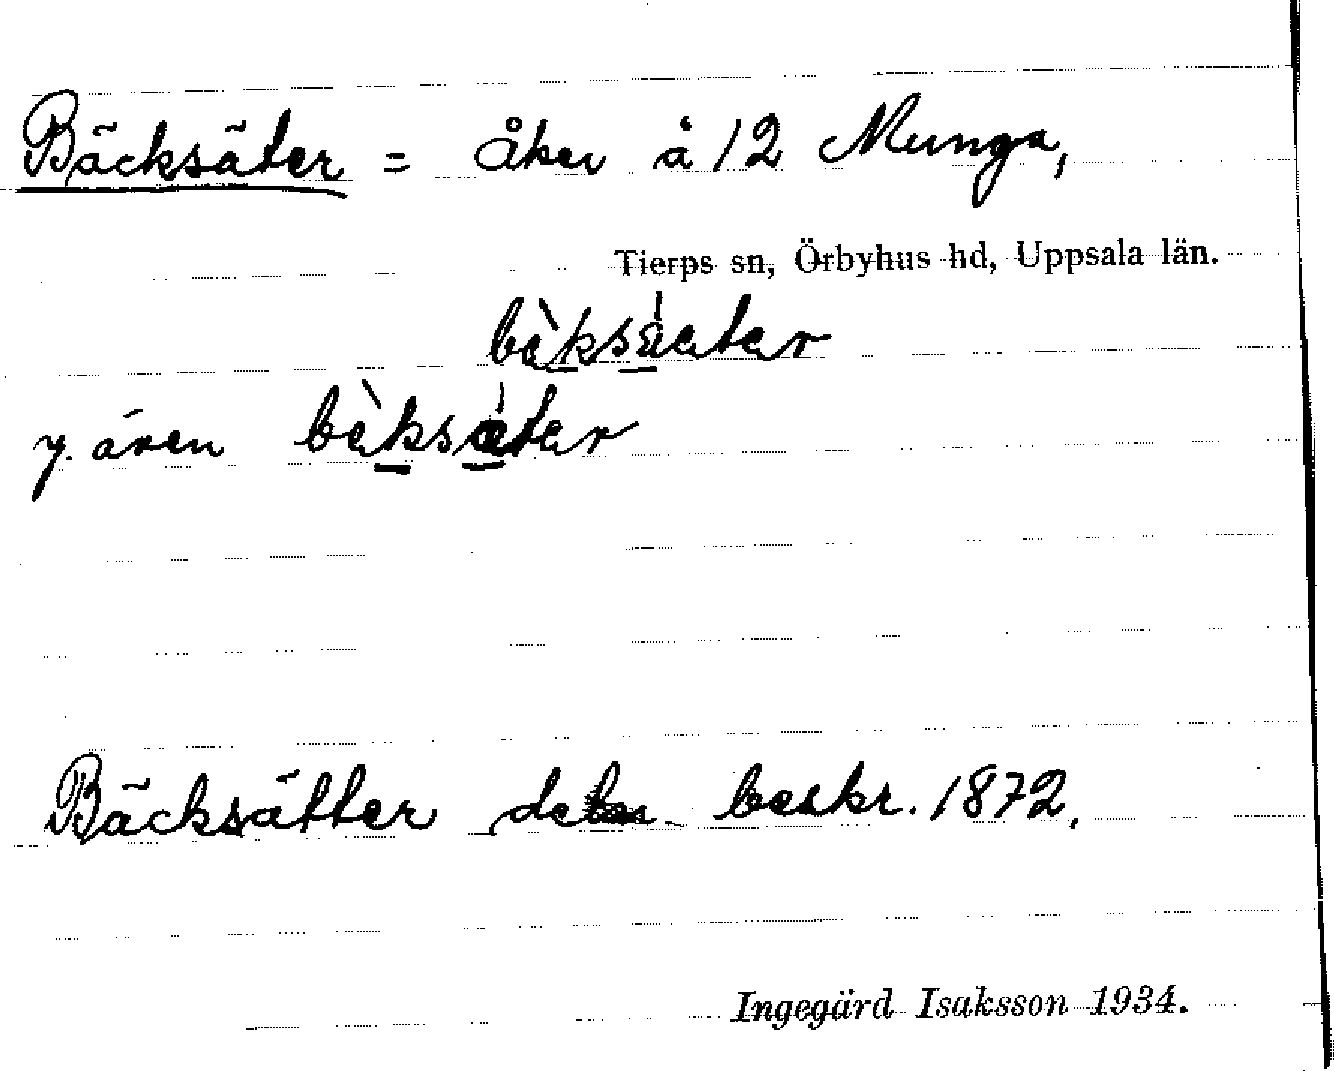 Bäcksäter = åker å 12 Munga,
Tierps sn, Örbyhus hd, Uppsala län.
bèksáeter
y. även bèksáter
Bäcksätter beskr. 1872.
Ingegärd Isaksson 1934.